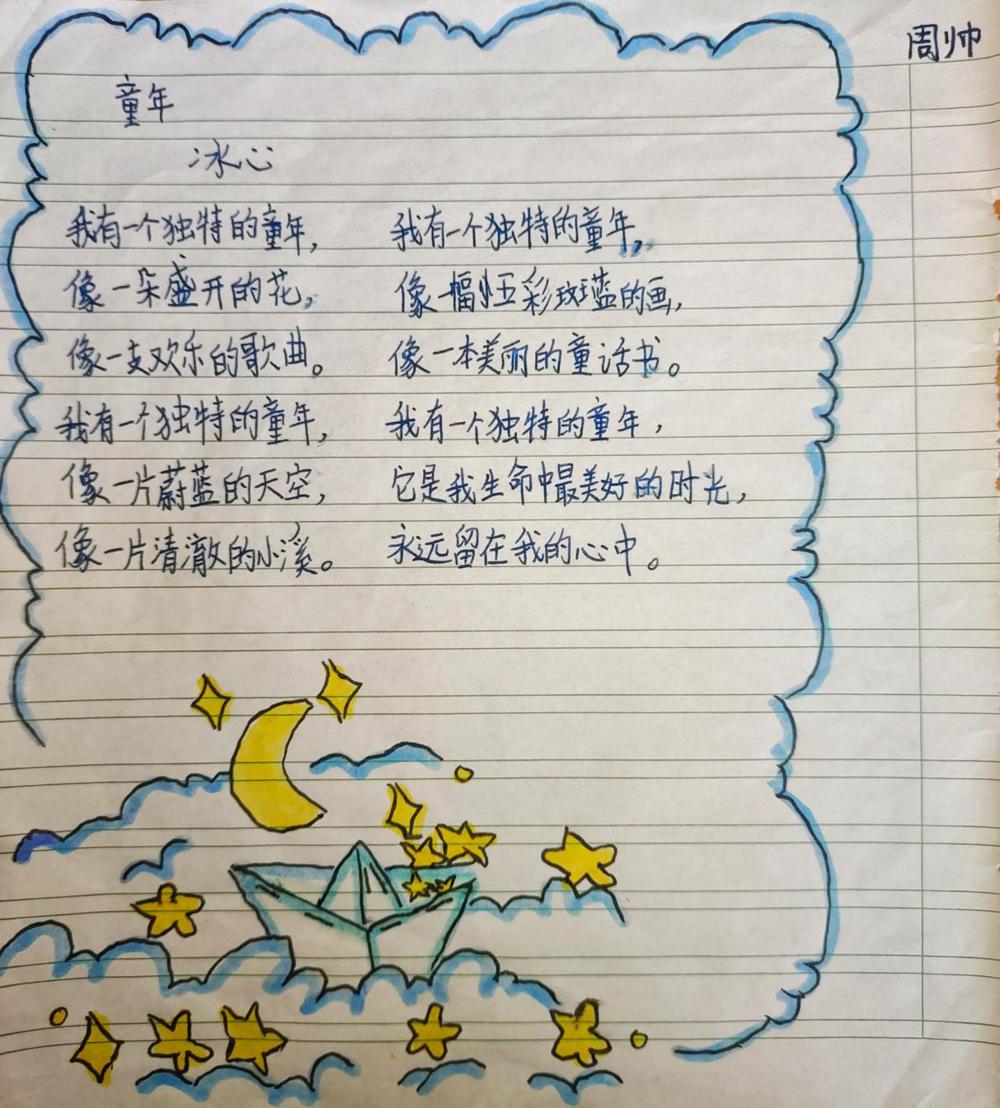 周帅
童年
冰心
我有一个独特的童年,
像一朵盛开的花,
像一支欢乐的歌曲。
我有一个独特的童年,
像一片蔚蓝的天空,
像一片清澈的小溪。
我有一个独特的童年,
像一幅五彩斑斓的画,
像一本美丽的童话书。
我有一个独特的童年,
它是我生命中最美好的时光,
永远留在我的心中。